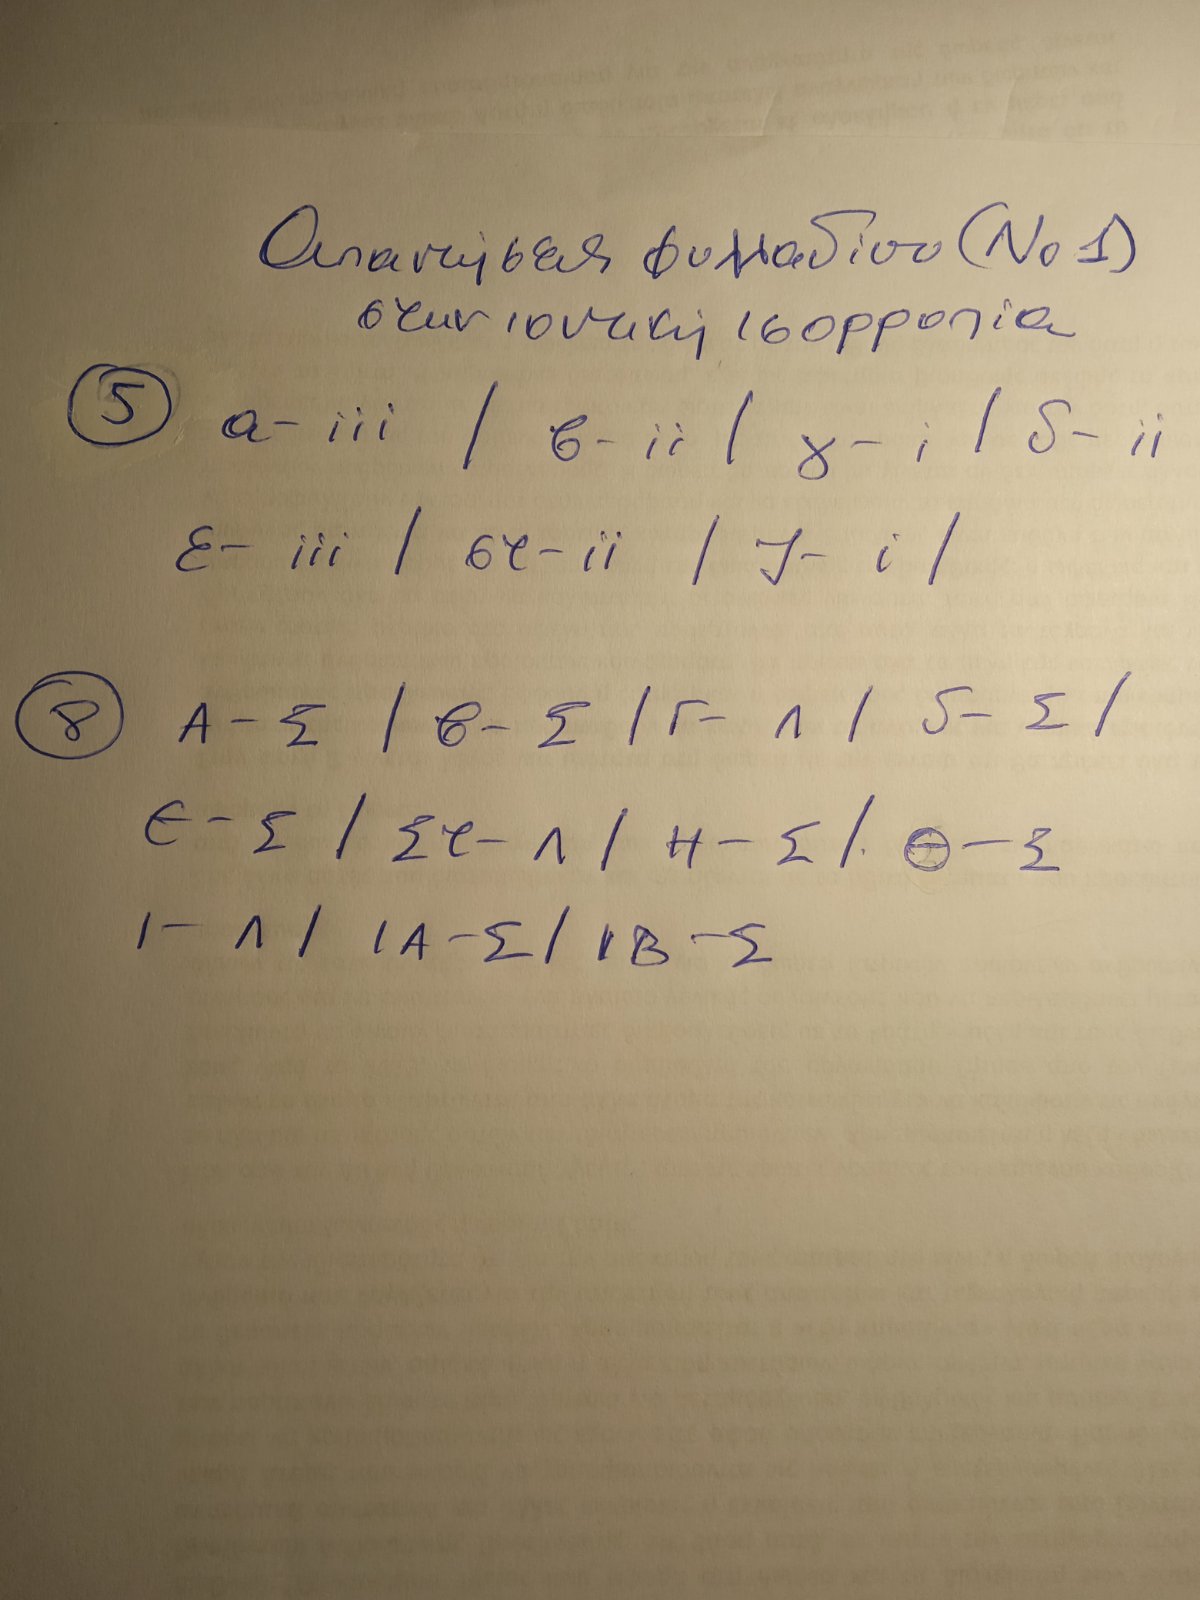 Απαντήσεις φυλλαδίου (Νο 1)
στην ιοντική ισορροπία
5 α- iii / β- ii / γ- i / δ- ii
ε- iii / στ- ii / J- i /
8 Α - Σ / β- Σ / Γ- Λ / δ- Σ /
Ε - Σ / Στ- Λ / Η - Σ / Θ - Σ
Ι - Λ / ΙΑ - Σ / ΙΒ - Σ